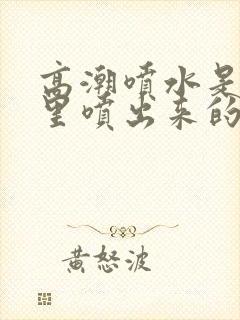 高潮喷水是
里喷出来的
黄怒波